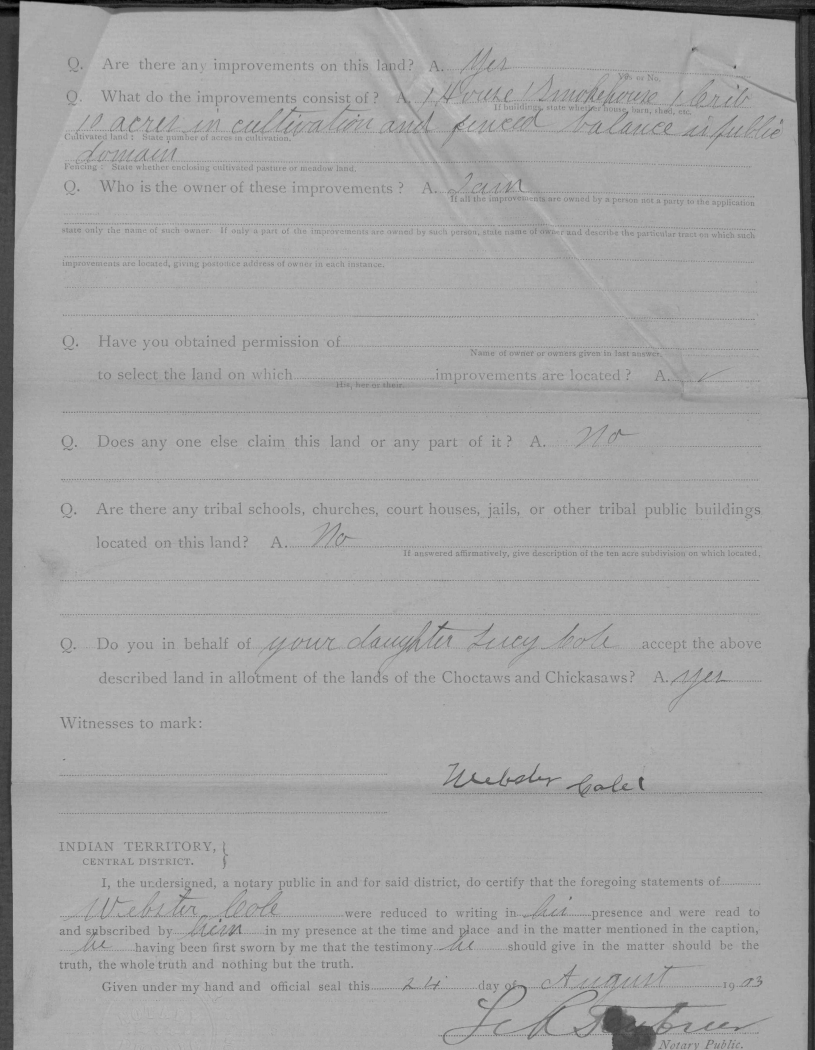 Q. Are there any improvements on this land? A. Yes
Yes or No.
Q. What do the improvements consist of? A. 1 House 1 Smokehouse 1 Crib
If buildings, state whether house, barn, shed, etc.
10 acres in cultivation and fenced balance is public
Cultivated land: State number of acres in cultivation.
domain
Fencing: State whether enclosing cultivated pasture or meadow land.
Q. Who is the owner of these improvements? A. I am
If all the improvements are owned by a person not a party to the application
state only the name of such owner. If only a part of the improvements are owned by such person, state name of owner and describe the particular tract on which such
improvements are located, giving postoffice address of owner in each instance.
Q. Have you obtained permission of
Name of owner or owners given in last answer.
to select the land on which improvements are located? A. ✓
His, her or their.
Q. Does any one else claim this land or any part of it? A. No
Q. Are there any tribal schools, churches, court houses, jails, or other tribal public buildings
located on this land? A. No
If answered affirmatively, give description of the ten acre subdivision on which located.
Q. Do you in behalf of your daughter Lucy Cole accept the above
described land in allotment of the lands of the Choctaws and Chickasaws? A. yes
Witnesses to mark:
Webster Cole
INDIAN TERRITORY, }
CENTRAL DISTRICT.
I, the undersigned, a notary public in and for said district, do certify that the foregoing statements of
Webster Cole were reduced to writing in his presence and were read to
and subscribed by him in my presence at the time and place and in the matter mentioned in the caption,
he having been first sworn by me that the testimony he should give in the matter should be the
truth, the whole truth and nothing but the truth.
Given under my hand and official seal this 24 day of August 1903
Notary Public.